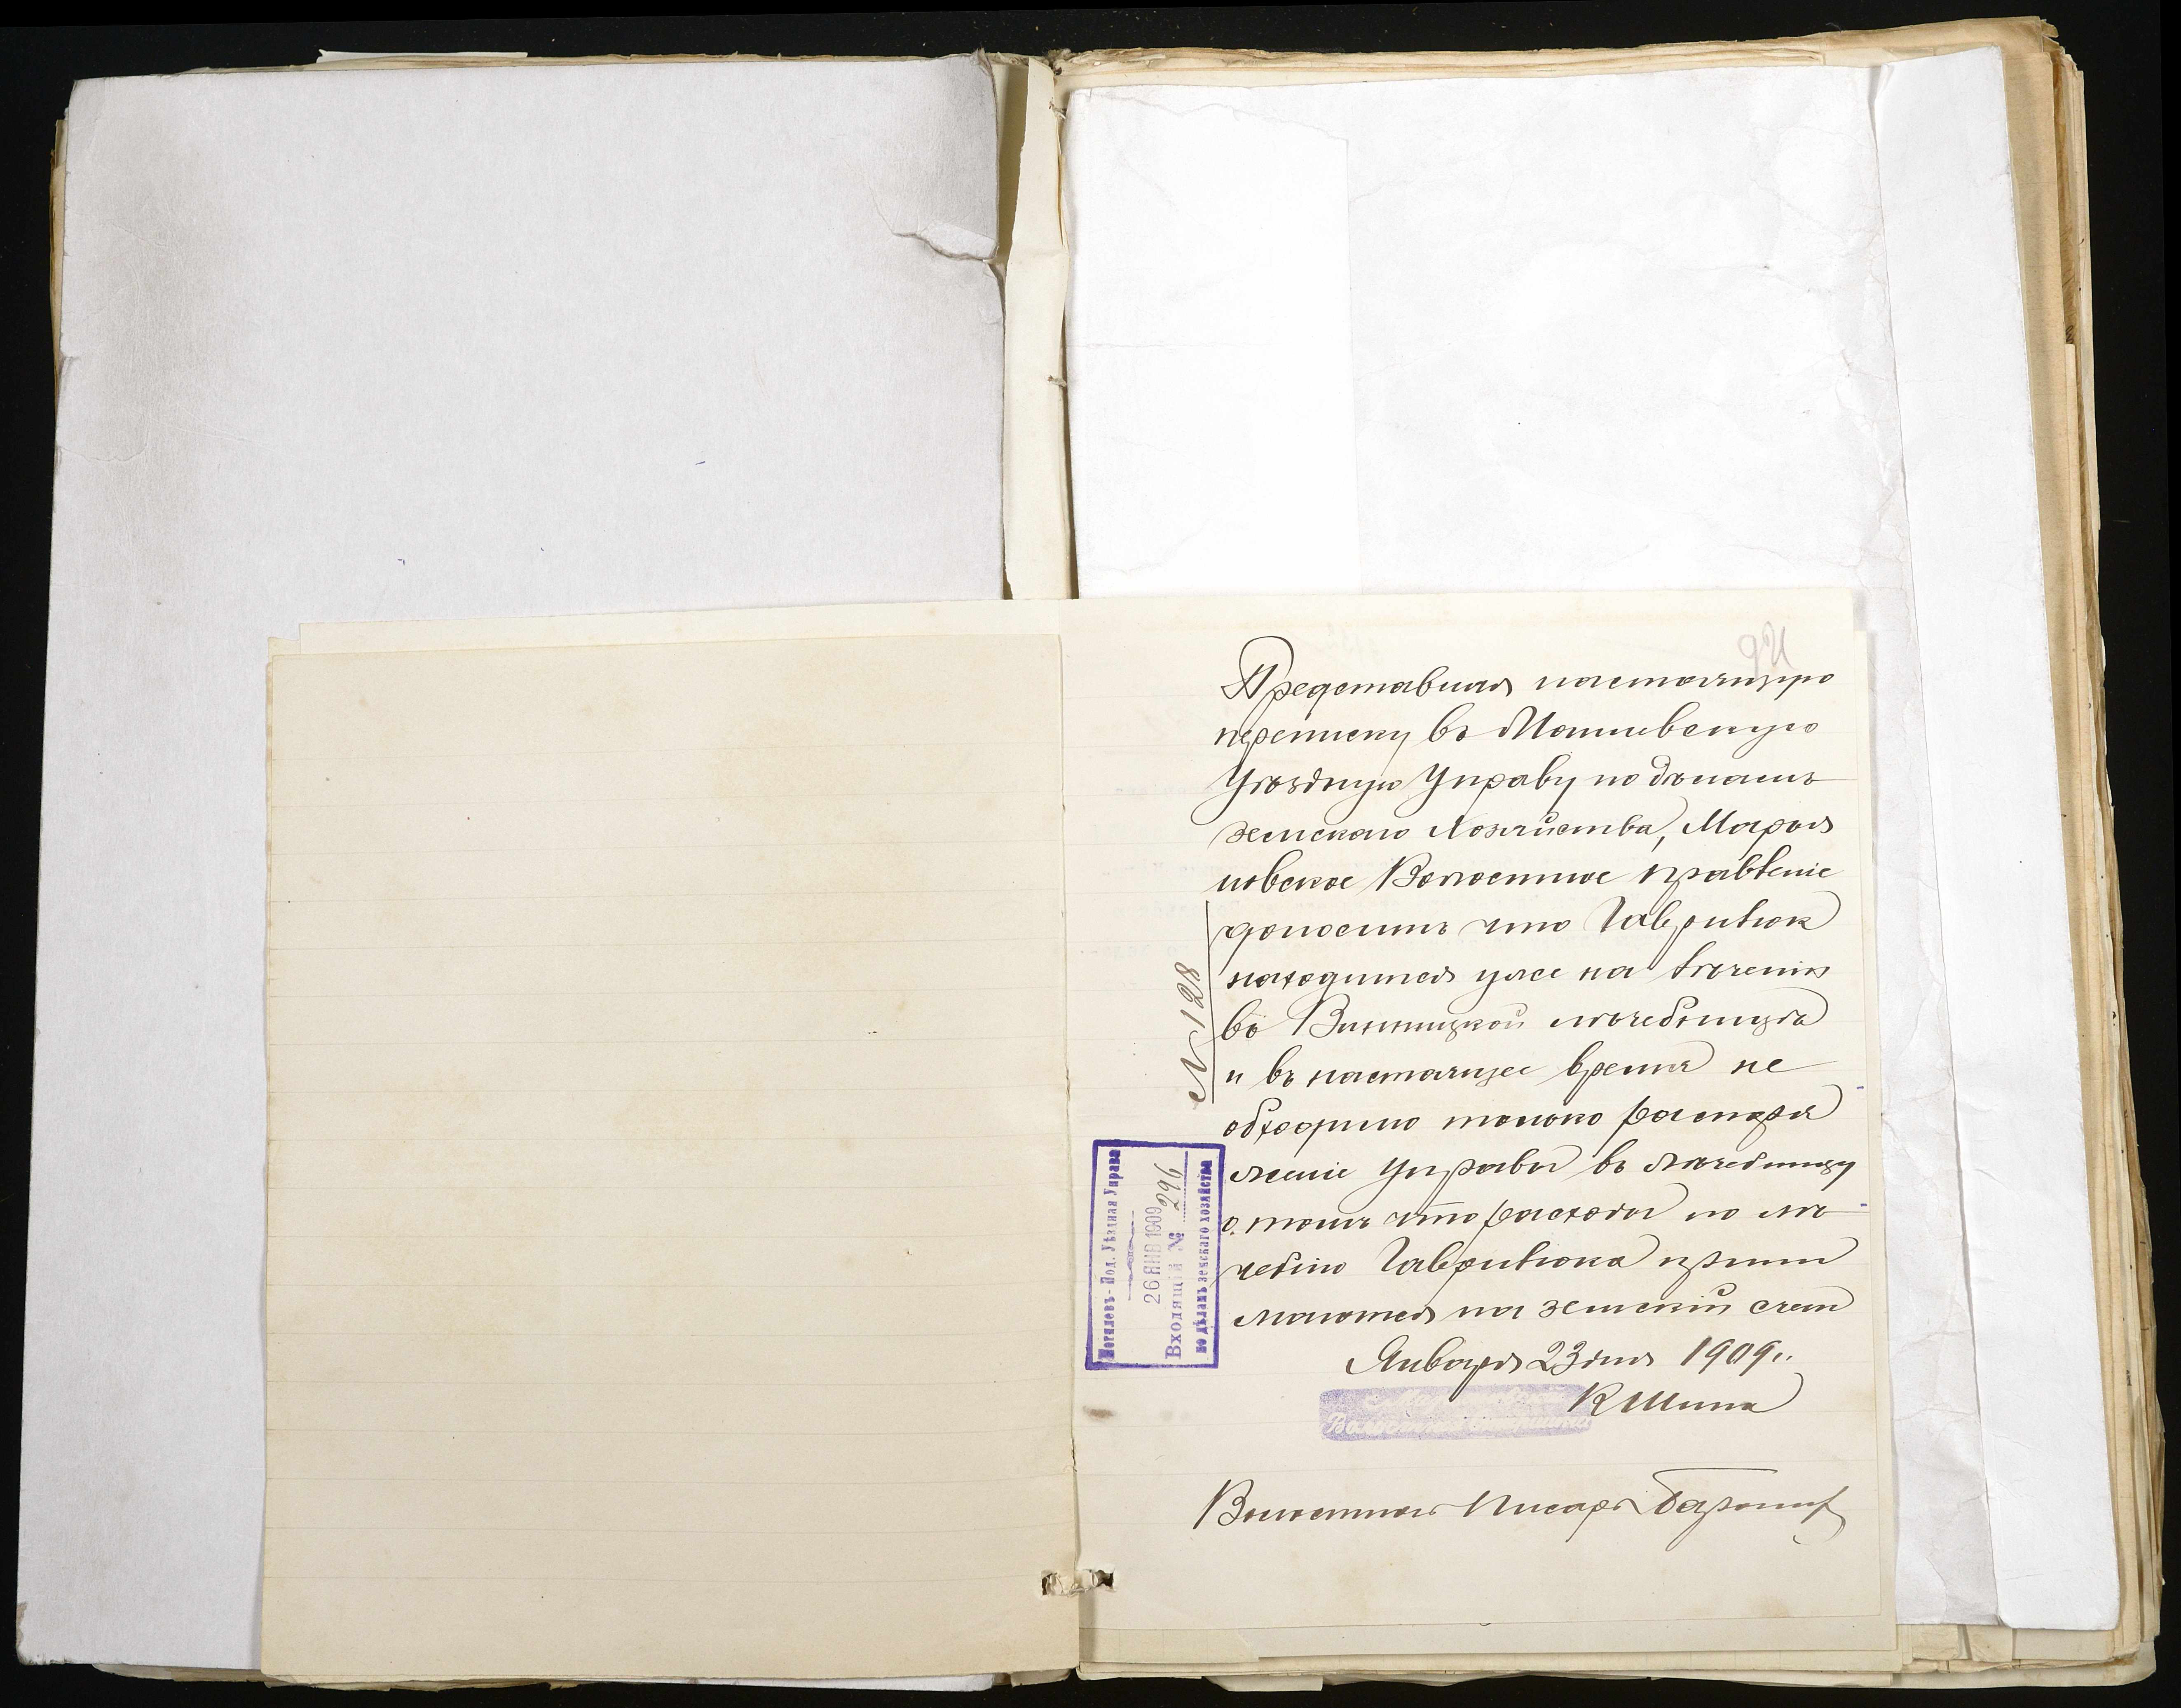 Представляя настоящую
переписку въ Могилевскую
Уѣздную Управу по дѣламъ
земскаго Хозяйства, Марья
новское Волостное правленіе
доноситъ что Гаврилюк
находится уже на леченіи
въ Винницкой лѣчебницѣ
и въ настоящее время не
обходимо только распоря
женіе Управы въ лѣчебницу
о томъ что расходы по лѣ
ченію Гаврилюка прини
маются на земскій счет
Января 23 дня 1909 г.
Волостной Писарь
№ 128
Могилевъ-Под. Уѣздная Управа
26 ЯНВ 1909
Входящій № 296
по дѣламъ земскаго хозяйства